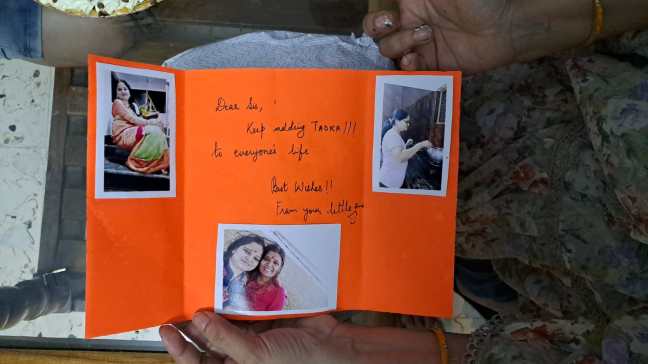 Dear Sis,
Keep adding TADKA!!!
to everyone's life
Best Wishes!!
From your little